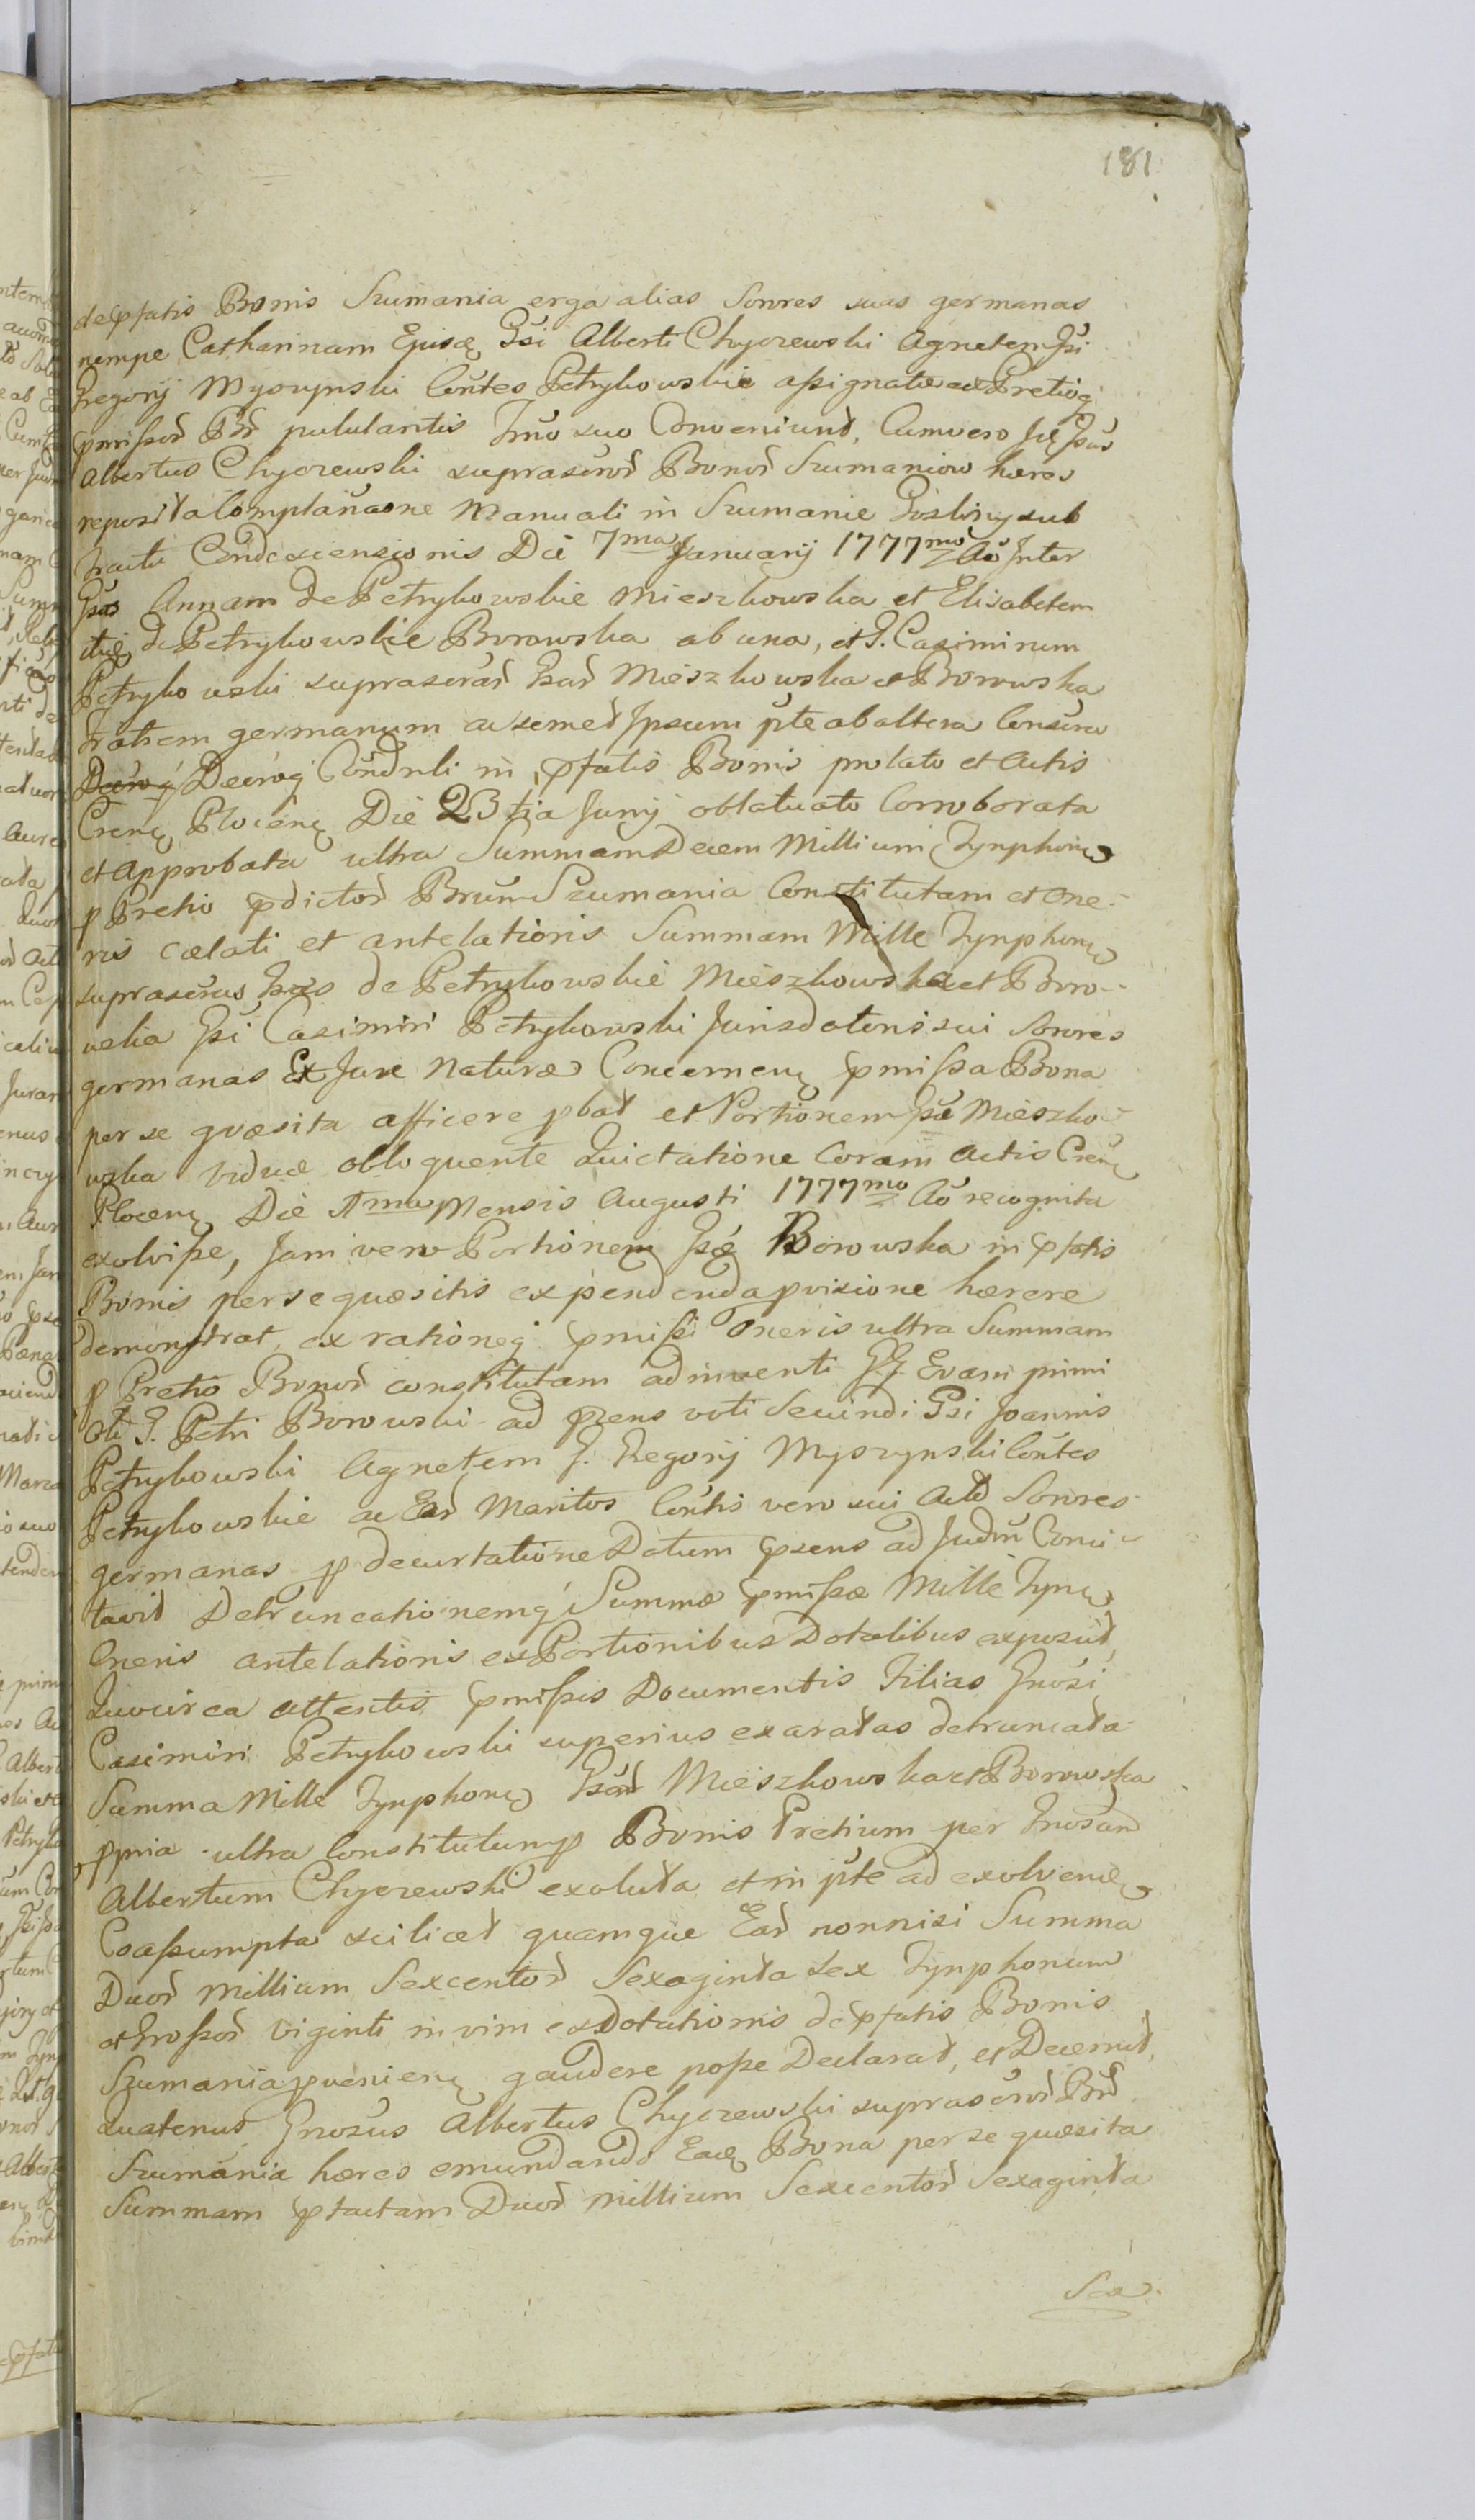 181
de pfatis Bonis Szumania erga alias Sorores suas germanas
nempe Catharinam Ejusq Gsi Alberti Chyczewski Agnetem Gsi
Gregorij Myszynski Contes Petrykowskie assignatae ex Pretiog
pmissoR BR pululantis Trno suo ConveniunR, Cumvero
Albertus Chyczewski suprascroR BonoR Szumaniow haeres
reposita Complanaone Manuali in Szumanie sub
tractu Condescensionis Die 7ma Januarij 1777mo Ao Inter
Gsas Annam de Petrykowskie Mieszkowska et Elisabetem
itidq de Petrykowskie Borowska ab una, et G. Casimirum
Petrykowski suprascraR GsaR Mieszkowska et Borowska
Fratrem germanum ac semet Ipsum pte ab altera
Decrog Condnli in pfatis Bonis prolato et Actis
Crenq Plocenq Die 23tia Junij oblatuato Corroborata
et Approbata ultra Summam Decem Millium Tynphonq
p Pretio pdictoR Brum Szumania Constitutam et One-
ris caelati et antelationis Summam Mille Tynphonq
suprascras Gsas de Petrykowskie Mieszkowska et Boro-
wska Gsi Casimiri Petrykowski Jurisdatoris sui Sorores
germanas Ex Jure Naturae Concernenq pmissa Bona
per se quaesita afficere pbat et Portionem Gsae Mieszko-
wska viduae obloquente Quietatione Coram Actis Crenq
Plocenq Die Mensis Augusti 1777mo Ao recognita
exolvisse, Jam vero Portionem Gsae Borowska in pfatis
Bonis per se quaesitis expendenda pvisione haerere
demonstrat, ex rationeq pmissi Oneris ultra Summam
p Pretio BonoR constitutam adinventi GG. Evam primi
oli G. Petri Borowski ad psens voti Secundi Gsi Joannis
Petrykowski Agnetem G. Gregorij Myszynski Contes
Petrykowskie ac EaR Maritos Contis vero sui Actt Sorores
germanas p decurtatione Datum psens ad Judm Conci-
tavit Detruncationemq Summae pmissae Mille Tynq
Oneris antelationis ex Portionibus Dotalibus exposuit,
Quocirca attentis pmissis Documentis Filias Gnosi
Casimiri Petrykowski superius exaratas detruncata
Summa Mille Tynphonq GsaR Mieszkowska et Borowska
ppria ultra Constitutum p Bonis Pretium per Gnosum
Albertum Chyczewski exoluta et in pte ad exolvendq
Coassumpta scilicet quamque EaR nonnisi Summa
DuoR Millium SexcentoR Sexaginta Sex Tynphonum
et GrossoR viginti in vim exdotationis de pfatis Bonis
Szumania pvenienq gaudere posse Declarat, et Decernit,
Quatenus Gnosus Albertus Chyczewski suprascroR BrR
Szumania haeres emundando Eadq Bona per se quaesita
Summam ptactam DuoR Millium SexcentoR Sexaginta
Sex